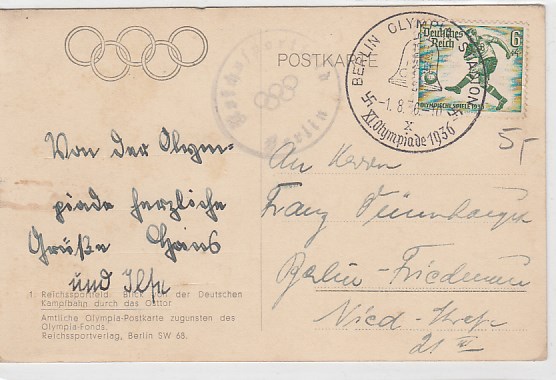 POSTKARTE
BERLIN OLYMPIA-STADION
-1.8.36.-10
x
XI. Olympiade 1936
Deutsches
Reich
6
OLYMPISCHE SPIELE 1936
Berlin
5,-
Von der Olym-
piade herzliche
Grüße Hans
und Ilse
1. Reichssportfeld. Blick von der Deutschen
Kampfbahn durch das Osttor
Amtliche Olympia-Postkarte zugunsten des
Olympia-Fonds.
Reichssportverlag, Berlin SW 68.
An Herrn
Franz
Berlin-Friedenau
Nied-Straße
21 III